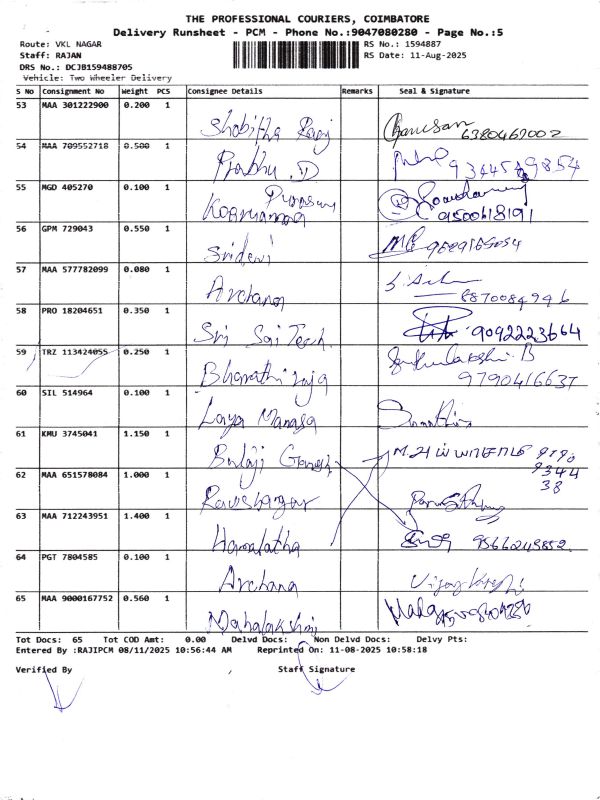 THE PROFESSIONAL COURIERS, COIMBATORE
Delivery Runsheet - PCM - Phone No.:9047080280 - Page No.:5
Route: VKL NAGAR RS No.: 1594887
Staff: RAJAN RS Date: 11-Aug-2025
DRS No.: DCJB159488705
Vehicle: Two Wheeler Delivery
S No Consignment No Weight PCS Consignee Details Remarks Seal & Signature
53 MAA 301222900 0.200 1 Shobitha 6380467002
54 MAA 709552718 0.500 1 Prabhu .D
55 MGD 405270 0.100 1 9500618191
56 GPM 729043 0.550 1 Sridevi
57 MAA 577782099 0.080 1 Archana 8870084946
58 PRO 18204651 0.350 1 Sri Sai Tech 9092223664
59 TRZ 113424055 0.250 1 Bharathi raja 9790416637
60 SIL 514964 0.100 1 Laya Manasa
61 KMU 3745041 1.150 1 Balaji Ganesh
62 MAA 651578084 1.000 1
63 MAA 712243951 1.400 1 Hemalatha 9566245852
64 PGT 7804585 0.100 1 Archana
65 MAA 9000167752 0.560 1 Mahalakshmi
Tot Docs: 65 Tot COD Amt: 0.00 Delvd Docs: Non Delvd Docs: Delvy Pts:
Entered By :RAJIPCM 08/11/2025 10:56:44 AM Reprinted On: 11-08-2025 10:58:18
Verified By Staff Signature